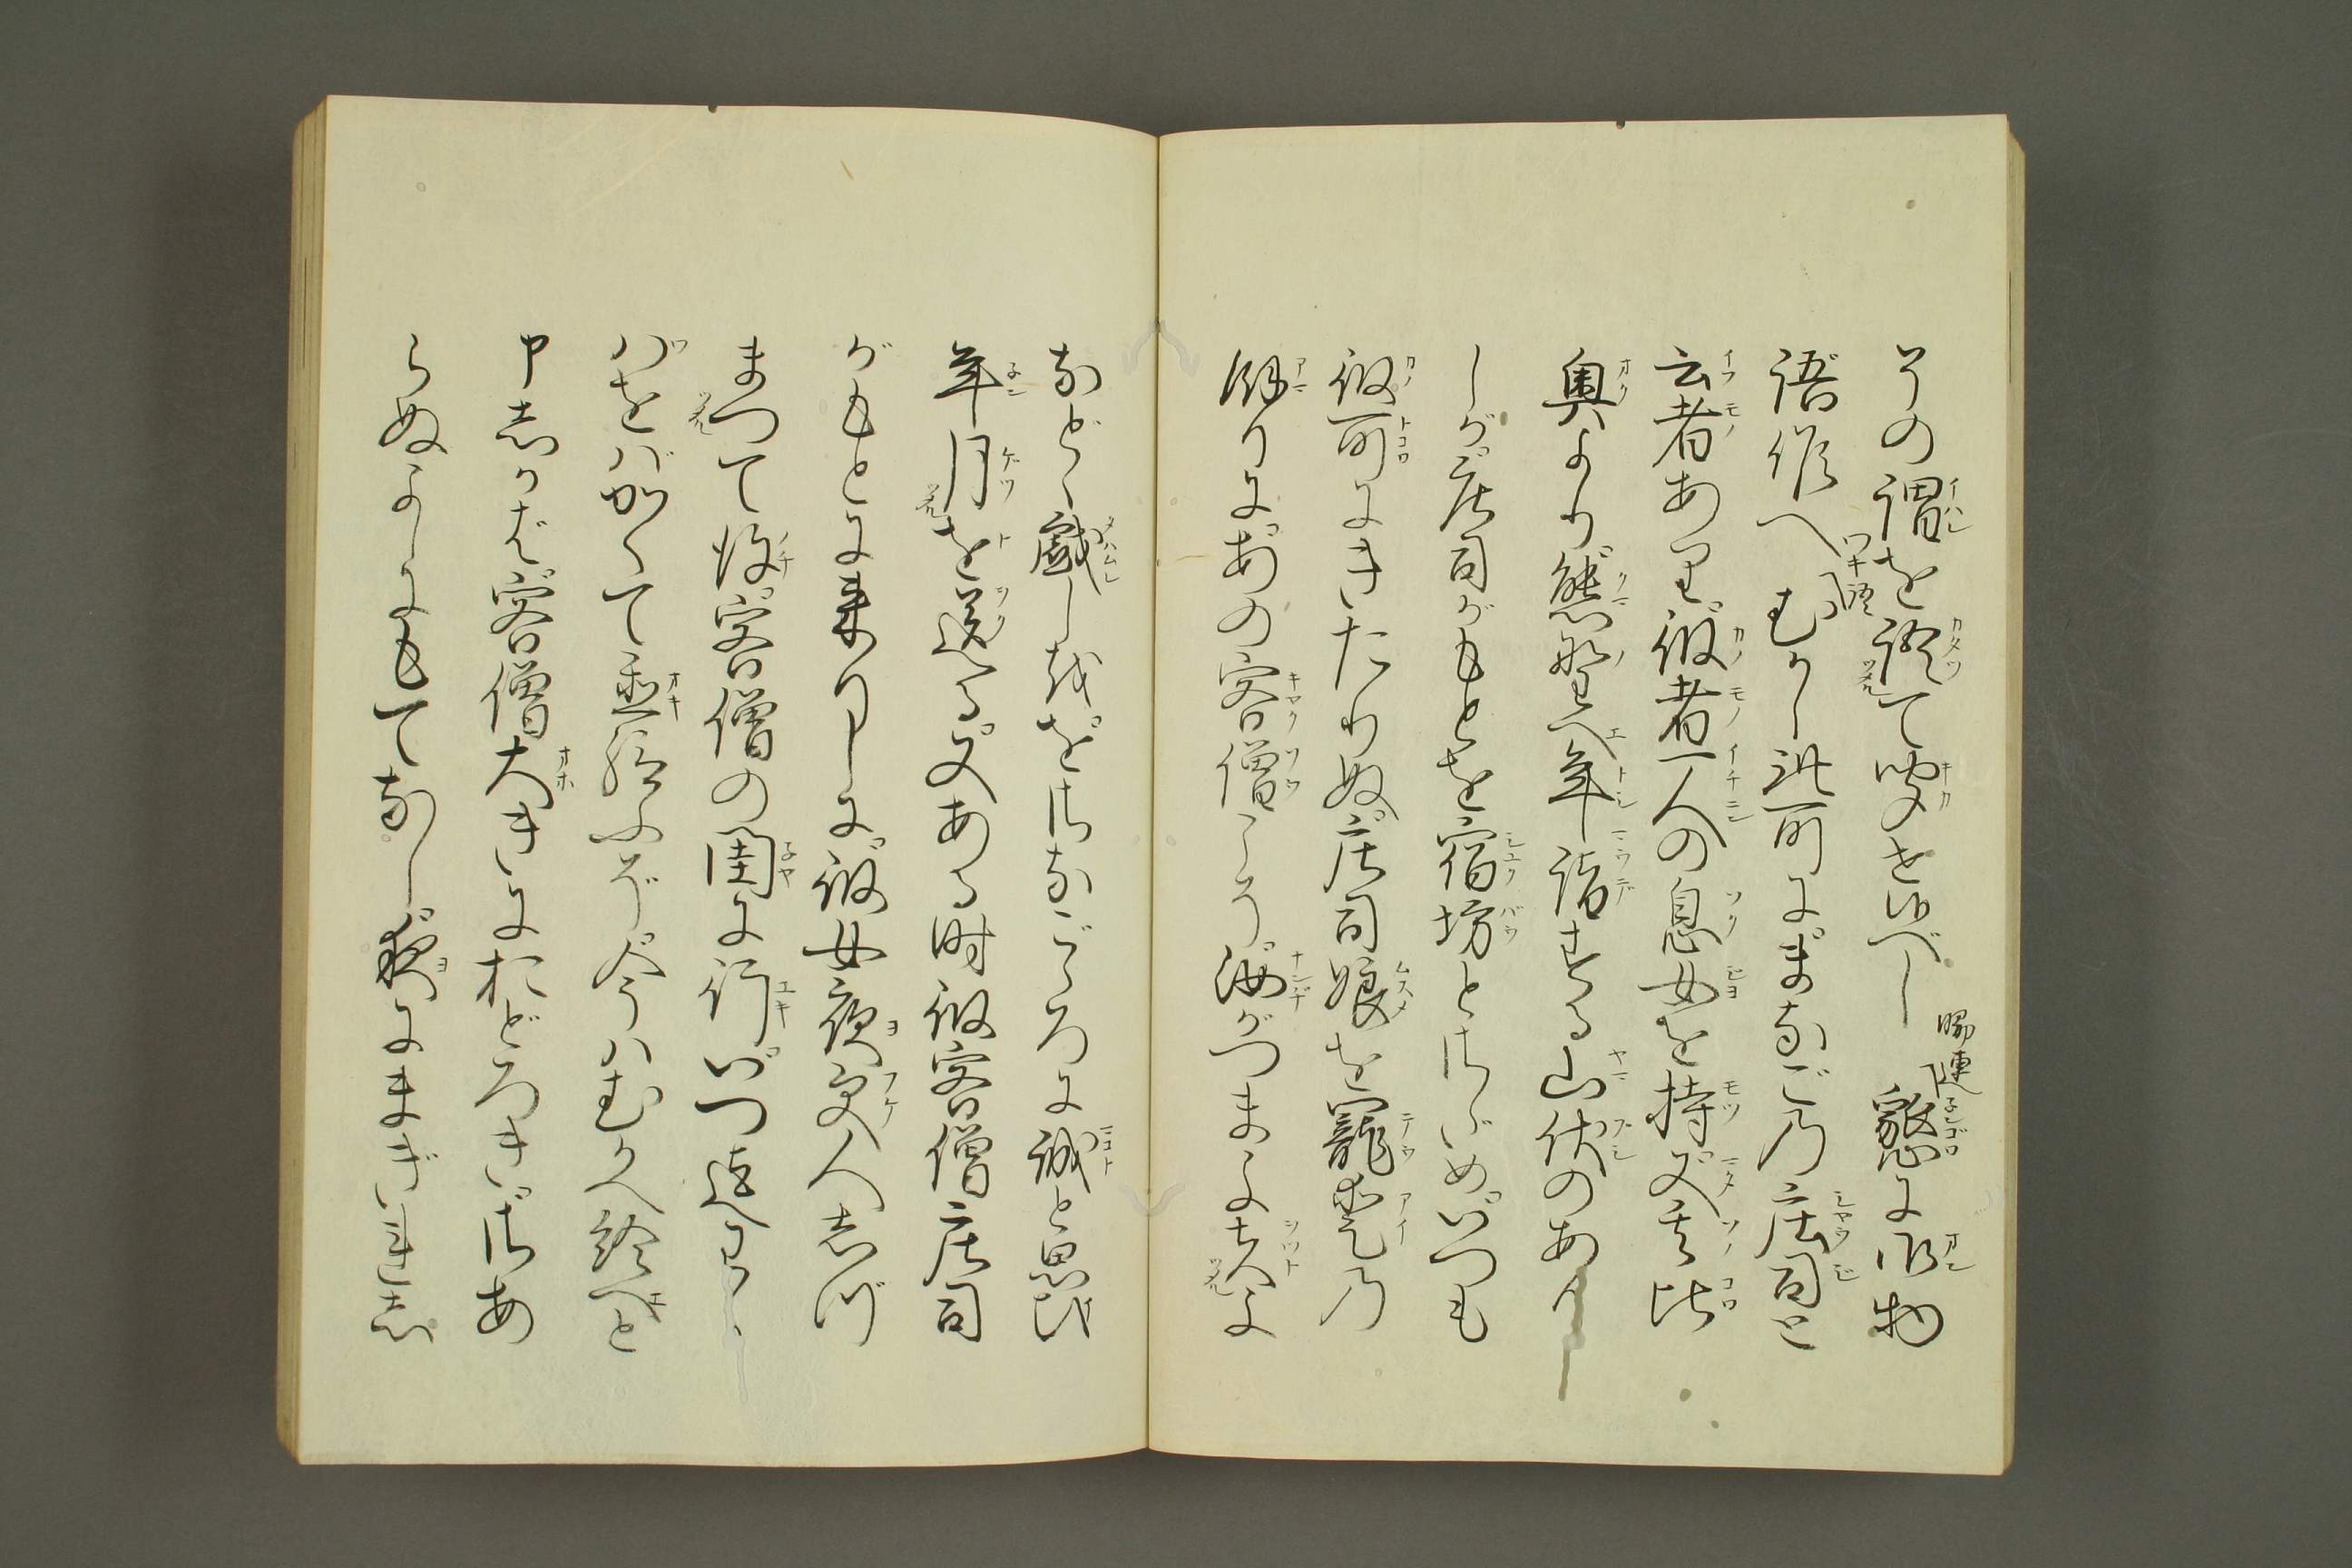 その謂を語て聞せ候べし 脇連 懇に御物
語候へ ワキ語 むかし此所にまなごの庄司と
云者あり彼者一人の息女を持又其比
奥より熊野へ年詣する山伏のあり
しが庄司がもとを宿坊とさだめいつも
彼所にきたりぬ庄司娘を寵愛の
余りにあの客僧こそ汝がつまよ夫よ
などゝ戯しをおさなごころに誠と思ひ
年月を送る又ある時彼客僧庄司
がもとに来りしに彼女夜更人しづ
まつて後客僧の閨に行いつ迄わら
はをばかくて置給ふぞ今はむかへ給へと
申しかば客僧大きにおどろきさあ
らぬよしにもてなし夜にまぎれ忍